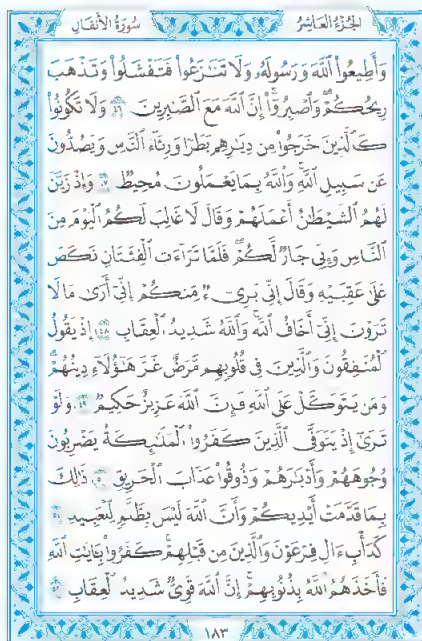 سُورَةُ الأَنفَالِ الجُزْءُ العَاشِرُ
وَأَطِيعُوا۟ ٱللَّهَ وَرَسُولَهُۥ وَلَا تَنَـٰزَعُوا۟ فَتَفْشَلُوا۟ وَتَذْهَبَ
رِيحُكُمْ ۖ وَٱصْبِرُوٓا۟ ۚ إِنَّ ٱللَّهَ مَعَ ٱلصَّـٰبِرِينَ ٤٦ وَلَا تَكُونُوا۟
كَٱلَّذِينَ خَرَجُوا۟ مِن دِيَـٰرِهِم بَطَرًا وَرِئَآءَ ٱلنَّاسِ وَيَصُدُّونَ
عَن سَبِيلِ ٱللَّهِ ۚ وَٱللَّهُ بِمَا يَعْمَلُونَ مُحِيطٌ ٤٧ وَإِذْ زَيَّنَ
لَهُمُ ٱلشَّيْطَـٰنُ أَعْمَـٰلَهُمْ وَقَالَ لَا غَالِبَ لَكُمُ ٱلْيَوْمَ مِنَ
ٱلنَّاسِ وَإِنِّى جَارٌ لَّكُمْ ۖ فَلَمَّا تَرَآءَتِ ٱلْفِئَتَانِ نَكَصَ
عَلَىٰ عَقِبَيْهِ وَقَالَ إِنِّى بَرِىٓءٌ مِّنكُمْ إِنِّىٓ أَرَىٰ مَا لَا
تَرَوْنَ إِنِّىٓ أَخَافُ ٱللَّهَ ۚ وَٱللَّهُ شَدِيدُ ٱلْعِقَابِ ٤٨ إِذْ يَقُولُ
ٱلْمُنَـٰفِقُونَ وَٱلَّذِينَ فِى قُلُوبِهِم مَّرَضٌ غَرَّ هَـٰٓؤُلَآءِ دِينُهُمْ ۗ
وَمَن يَتَوَكَّلْ عَلَى ٱللَّهِ فَإِنَّ ٱللَّهَ عَزِيزٌ حَكِيمٌ ٤٩ وَلَوْ
تَرَىٰٓ إِذْ يَتَوَفَّى ٱلَّذِينَ كَفَرُوا۟ ۙ ٱلْمَلَـٰٓئِكَةُ يَضْرِبُونَ
وُجُوهَهُمْ وَأَدْبَـٰرَهُمْ وَذُوقُوا۟ عَذَابَ ٱلْحَرِيقِ ٥٠ ذَٰلِكَ
بِمَا قَدَّمَتْ أَيْدِيكُمْ وَأَنَّ ٱللَّهَ لَيْسَ بِظَلَّـٰمٍ لِّلْعَبِيدِ ٥١
كَدَأْبِ ءَالِ فِرْعَوْنَ ۙ وَٱلَّذِينَ مِن قَبْلِهِمْ ۚ كَفَرُوا۟ بِـَٔايَـٰتِ ٱللَّهِ
فَأَخَذَهُمُ ٱللَّهُ بِذُنُوبِهِمْ ۗ إِنَّ ٱللَّهَ قَوِىٌّ شَدِيدُ ٱلْعِقَابِ ٥٢
١٨٣